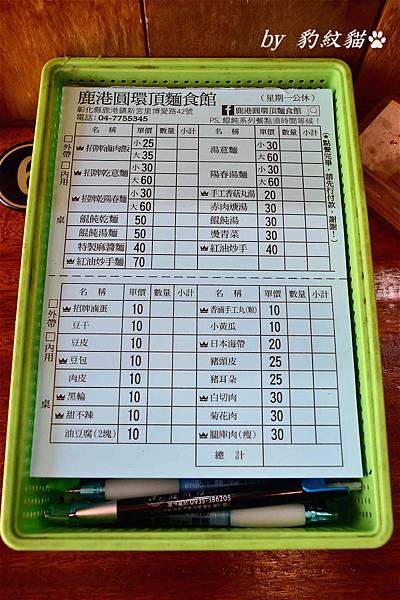 by 豹紋貓
鹿港圓環頂麵食館 (星期一公休)
彰化縣鹿港鎮新宮里博愛路42號 f 鹿港圓環頂麵食館
電話:04-7755345 PS. 餛飩系列餐點須時間等候!
名稱 單價 數量 小計 名稱 單價 數量 小計
招牌滷肉飯 小25 大35 湯意麵 小30 大60
招牌乾意麵 小30 大60 陽春湯麵 小30 大60
招牌乾陽春麵 小30 大60 手工香菇丸湯 20
赤肉焿湯 30
餛飩乾麵 50 餛飩湯 30
餛飩湯麵 50 燙青菜 30
特製麻醬麵 40 紅油炒手 40
紅油炒手麵 70
□外帶 □內用 桌
(※點餐完畢,請先行付款,謝謝!)
名稱 單價 數量 小計 名稱 單價 數量 小計
招牌滷蛋 10 香滷手工丸(顆) 10
豆干 10 小黃瓜 10
豆皮 10 日本海帶 20
豆包 10 豬頭皮 25
肉皮 10 豬耳朵 25
黑輪 10 白切肉 30
甜不辣 10 菊花肉 30
油豆腐(2塊) 10 腿庫肉(瘦) 30
總計
□外帶 □內用 桌
0935-386205